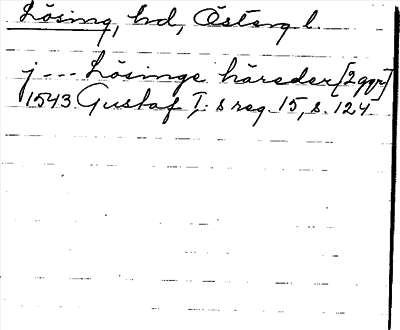 Lösing, hd, Östergl.
j --- Lösinge häreder [2 ggr]
1543 Gustaf I:s reg. 15, s. 124